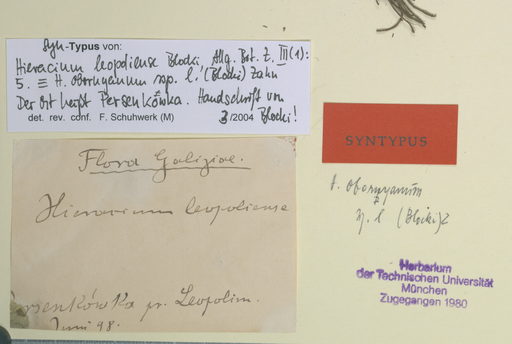 Syn-Typus von:
Hieracium leopoliense Blocki, Allg. Bot. Z. III(1):
5. ≡ H. obornyanum ssp. l. (Blocki) Zahn
Der Ort heißt Persenkówka. Handschrift von
det. rev. conf. F. Schuhwerk (M) 3/2004 Blocki!
Flora Galiziae.
Hieracium leopoliense
Persenkówka pr. Leopolim.
Juni 98.
SYNTYPUS
H. obornyanum
l (Blocki) Z
Herbarium
der Technischen Universität
München
Zugegangen 1980